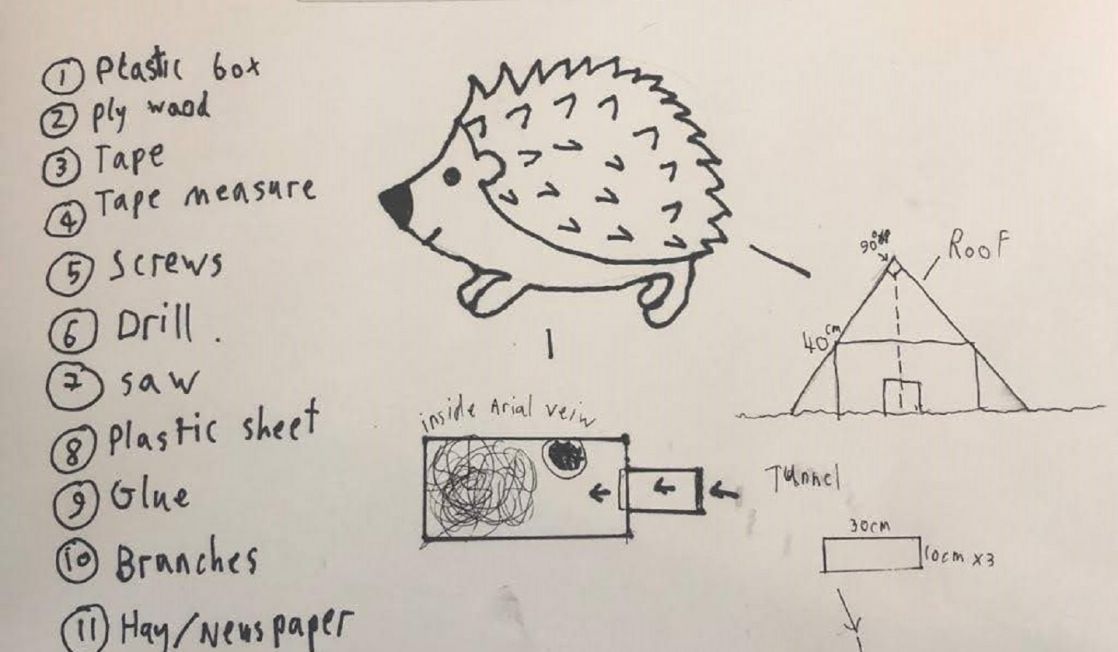 1 Plastic box
2 Ply wood
3 Tape
4 Tape measure
5 Screws
6 Drill.
7 saw
8 Plastic sheet
9 Glue
10 Branches
11 Hay/Newspaper
90°
Roof
40cm
inside Arial veiw
Tunnel
30cm
10cm x3